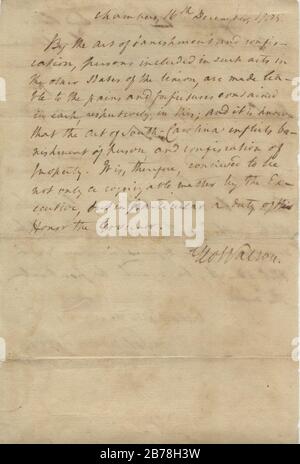 Chambers, 16th December, 1785
By the act of banishment and confis-
cation, persons included in such acts in
the other States of the Union, are made lia-
ble to the pains and forfeitures contained
in each, respectively, in this; and it is known
that the act of South-Carolina inflicts ba-
nishment of person and confiscation of
property. It is, therefore, conceived to be
not only a cognizable matter by the Ex-
ecutive, but a duty of his
Honor the Governor.
Geo Walton.
alamy
Image ID: 2B78H3W
www.alamy.com